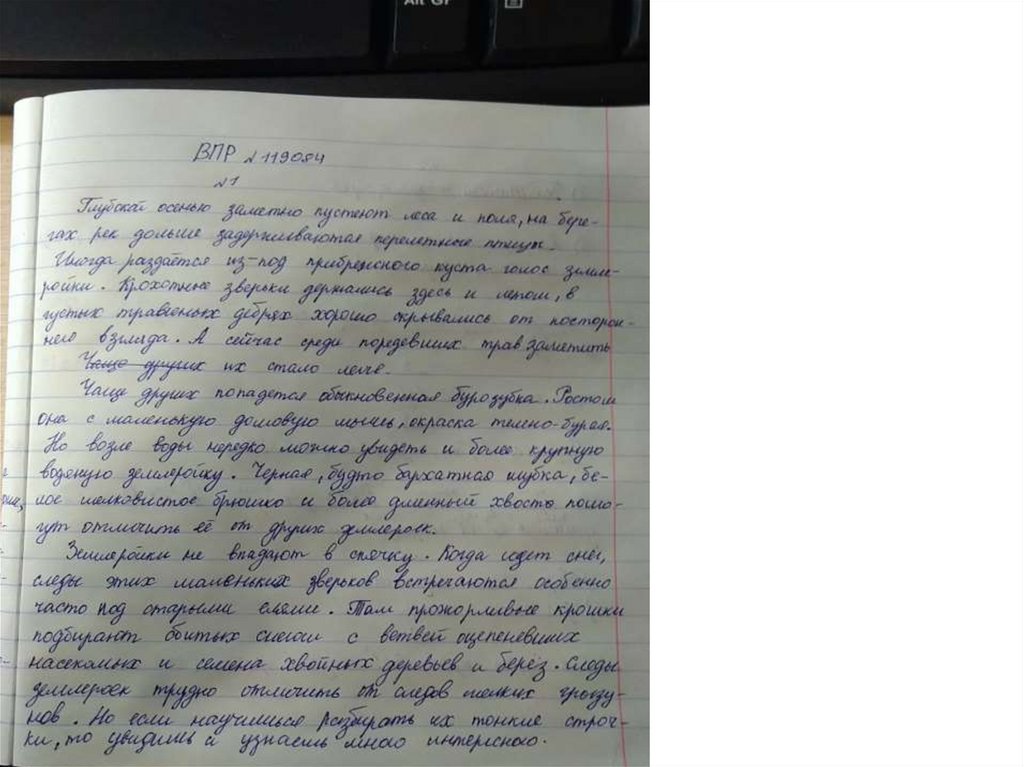 Alt Gr
ВПР №119084
№1
Глубокой осенью заметно пустеют леса и поля, на бере-
гах рек дольше задерживаются перелетные птицы.
Иногда раздаётся из-под прибрежного куста голос земле-
ройки. Крохотные зверьки держались здесь и летом, в
густых травяных дебрях хорошо скрывались от посторон-
него взгляда. А сейчас среди поредевших трав заметить
Чаще других их стало легче.
Чаще других попадется обыкновенная бурозубка. Ростом
она с маленькую домовую мышь, окраска темно-бурая.
Но возле воды нередко можно увидеть и более крупную
водяную землеройку. Черная, будто бархатная шубка, бе-
лое шелковистое брюшко и более длинный хвост помо-
гут отличить её от других землероек.
Землеройки не впадают в спячку. Когда идет снег,
следы этих маленьких зверьков встречаются особенно
часто под старыми елями. Там прожорливые крошки
подбирают сбитых снегом с ветвей оцепеневших
насекомых и семена хвойных деревьев и берёз. Следы
землероек трудно отличить от следов мелких грызу-
нов. Но если научишься разбирать их тонкие строч-
ки, то увидишь и узнаешь много интересного.